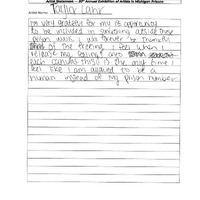 Artist Statement — 30th Annual Exhibition of Artists in Michigan Prisons
Artist Name: Taylin Lahr
I'm very grateful for my 1st opportunity
to be included in something outside these
prison walls. I was forever be thankful
of the freeing I feel when I
release my feelings onto
each canvas this is the only time I
feel like I am allowed to be a
human instead of my prison number